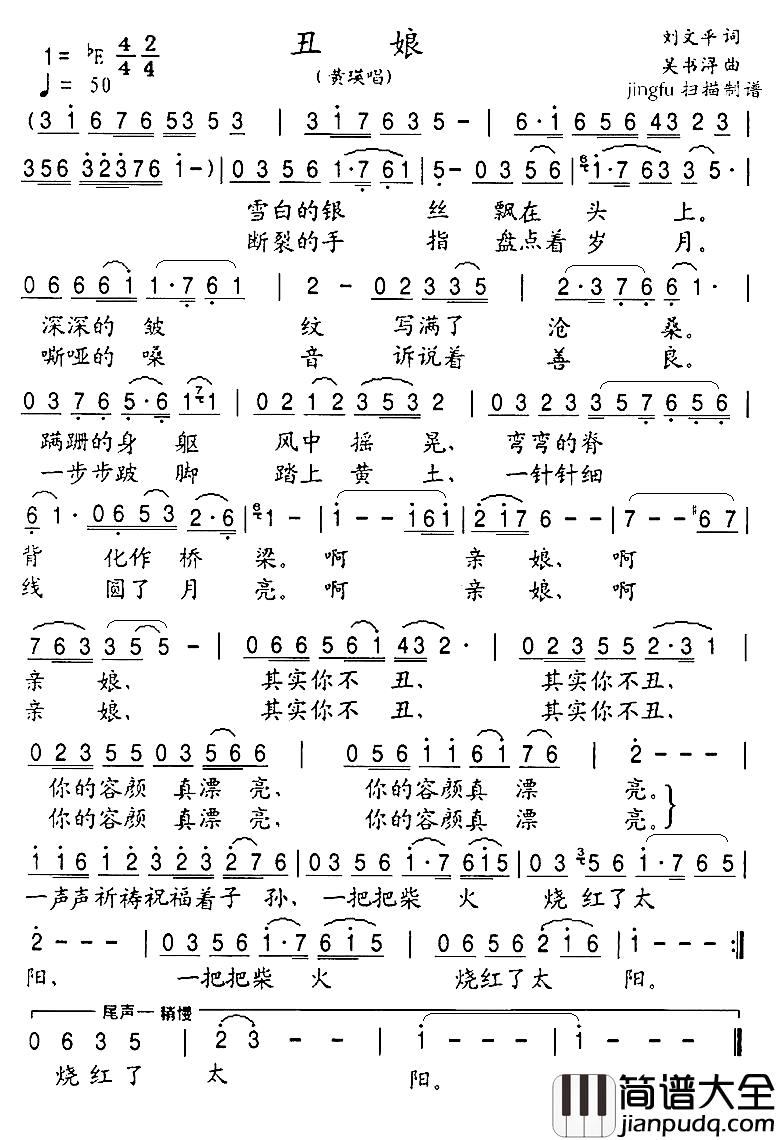 1=♭E 4/4 2/4 丑娘 刘文平词
♩=50 (黄瑛唱) 吴书浔曲
jingfu 扫描制谱
(3 i 6 7 6 53 5 3 | 3 i 7 6 5 - | 6·i 6 5 6 43 2 3 |
356 32376 1-) | 0 3 5 6 1·7 61 | 5- 0 3 5 6 | 1·7 63 3 5· |
雪白的银 丝 飘在 头 上。
断裂的手 指 盘点着岁 月。
0 6 6 6 i 1·7 6 1 | 2 - 0 2 3 3 5 | 2·3 7 6 6 1· |
深深的皱 纹 写满了 沧 桑。
嘶哑的嗓 音 诉说着 善 良。
0 3 7 6 5·6 1 1 | 0 2 1 2 3 5 3 2 | 0 3 2 3 3 5 7 6 5 6 |
蹒跚的身 躯 风中 摇 晃、 弯弯的脊
一步步跛 脚 踏上 黄 土、 一针针细
6 1· 0 6 5 3 2·6 | 1 - | i - - i 6 i | 2 i 7 6 - - | 7 - - #6 7 |
背 化作 桥 梁。啊 亲 娘、啊
线 圆了 月 亮。啊 亲 娘、啊
7 6 3 3 5 5 - | 0 6 6 5 6 i 43 2· | 0 2 3 5 5 2·3 1 |
亲 娘、 其实你不 丑、 其实你不丑、
亲 娘、 其实你不 丑、 其实你不丑、
0 2 3 5 5 0 3 5 6 6 | 0 5 6 i i 6 i 7 6 | 2 - - - |
你的容颜 真漂 亮、 你的容颜真 漂 亮。
你的容颜 真漂 亮、 你的容颜真 漂 亮。
i i 6 i 2 3 2 3 2 7 6 | 0 3 5 6 i·7 6 i 5 | 0 3 5 6 i·7 6 5 |
一声声祈祷祝福着子 孙、一把把柴 火 烧红了太
2 - - - | 0 3 5 6 i·7 6 i 5 | 0 6 5 6 2 i 6 | i - - - :||
阳、 一把把柴 火 烧红了太 阳。
尾声 稍慢
0 6 3 5 | 2 3 - - | i - - - | i - - - ||
烧红了 太 阳。
简谱大全
jianpudq.com